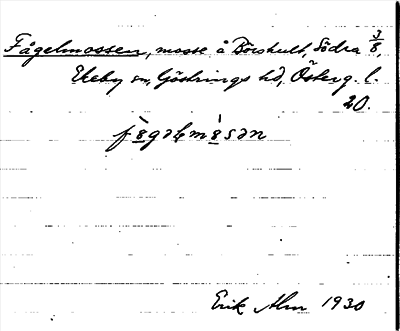 Fågelmossen, mosse å Börshult, Södra 3/8,
Ekeby sn, Göstrings hd, Österg. l.
20.
fògəlmòsən
Erik Alm 1930